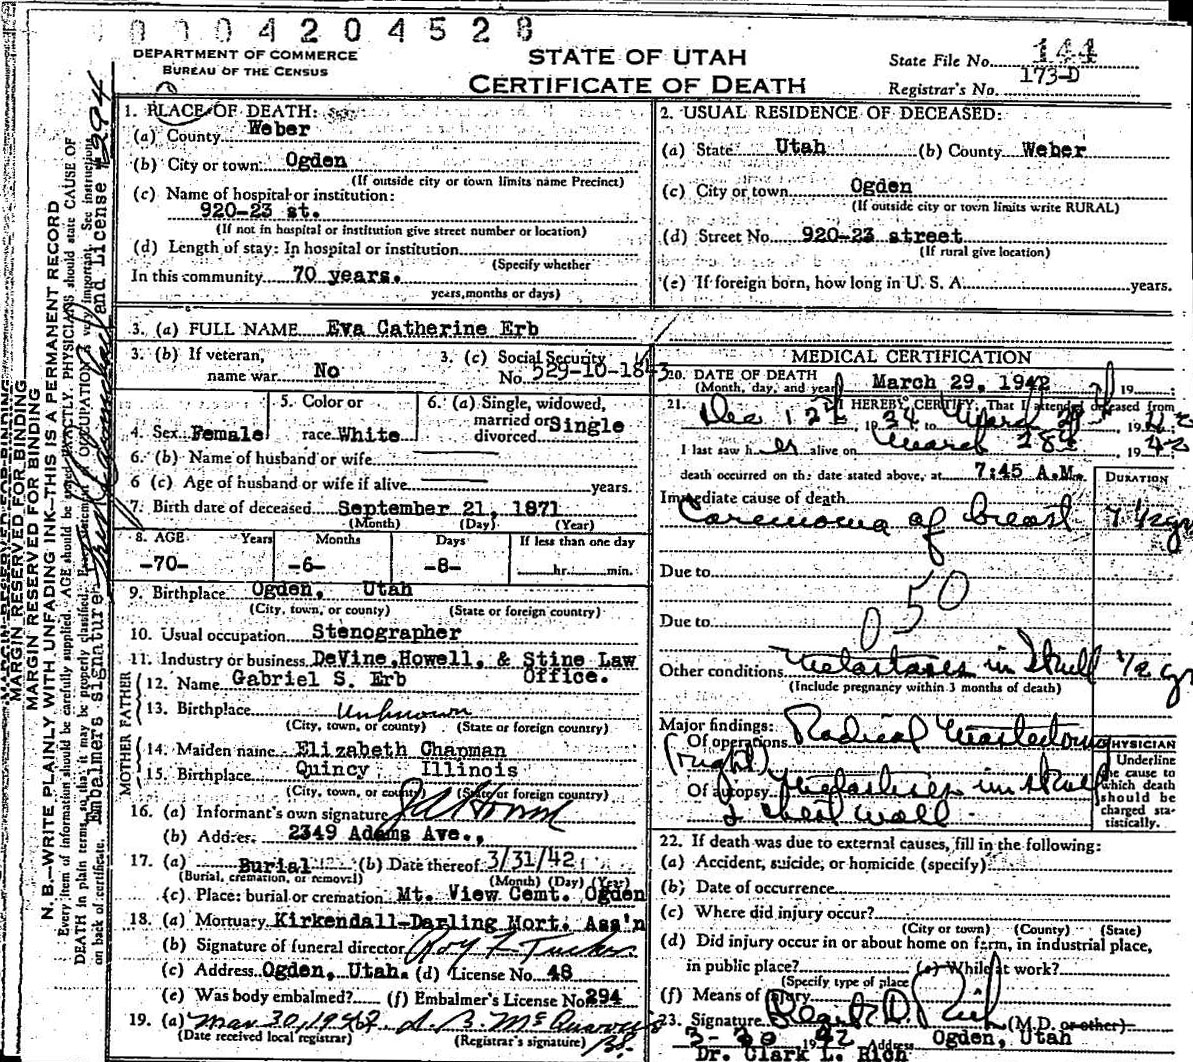 0 0 0 4 2 0 4 5 2 8
DEPARTMENT OF COMMERCE
BUREAU OF THE CENSUS
STATE OF UTAH
CERTIFICATE OF DEATH
State File No. 144
173-D
Registrar's No.
1. PLACE OF DEATH:
(a) County Weber
(b) City or town Ogden
(If outside city or town limits name Precinct)
(c) Name of hospital or institution:
920-23 st.
(If not in hospital or institution give street number or location)
(d) Length of stay: In hospital or institution
(Specify whether
In this community 70 years.
years, months or days)
2. USUAL RESIDENCE OF DECEASED:
(a) State Utah (b) County Weber
(c) City or town Ogden
(If outside city or town limits write RURAL)
(d) Street No. 920-23 street
(If rural give location)
(e) If foreign born, how long in U. S. A. years.
3. (a) FULL NAME Eva Catherine Erb
3. (b) If veteran, name war No
3. (c) Social Security No. 529-10-1843
4. Sex Female
5. Color or race White
6. (a) Single, widowed, married or divorced Single
6. (b) Name of husband or wife
6 (c) Age of husband or wife if alive years.
7. Birth date of deceased September 21, 1871
(Month) (Day) (Year)
8. AGE Years Months Days If less than one day
-70- -6- -8- hr. min.
9. Birthplace Ogden, Utah
(City, town, or county) (State or foreign country)
10. Usual occupation Stenographer
11. Industry or business DeVine, Howell, & Stine Law Office.
FATHER
12. Name Gabriel S. Erb
13. Birthplace Unknown
(City, town, or county) (State or foreign country)
MOTHER
14. Maiden name Elizabeth Chapman
15. Birthplace Quincy Illinois
(City, town, or county) (State or foreign country)
16. (a) Informant's own signature
(b) Address 2349 Adams Ave.,
17. (a) Burial (b) Date thereof 3/31/42
(Burial, cremation, or removal) (Month) (Day) (Year)
(c) Place: burial or cremation Mt. View Cemt. Ogden
18. (a) Mortuary Kirkendall-Darling Mort. Ass'n
(b) Signature of funeral director Roy F Tucker
(c) Address Ogden, Utah. (d) License No. 48
(e) Was body embalmed? (f) Embalmer's License No. 294
19. (a) Mar 30, 1942
(Date received local registrar) (Registrar's signature)
MEDICAL CERTIFICATION
20. DATE OF DEATH
(Month, day, and year) March 29, 1942 19
21. I HEREBY CERTIFY, That I attended deceased from
Dec 12th 1934 to March 29th 1942
I last saw her alive on March 28th 1942
death occurred on the date stated above, at 7:45 A.M.
DURATION
Immediate cause of death
Carcinoma of breast 7 1/2 yr
Due to
050
Due to
Other conditions Metastases in Skull 1/2 yr
(Include pregnancy within 3 months of death)
Major findings:
Of operations Radical Mastectomy
(right)
Of autopsy Metastases in skull
& chest wall
PHYSICIAN
Underline the cause to which death should be charged statistically.
22. If death was due to external causes, fill in the following:
(a) Accident, suicide, or homicide (specify)
(b) Date of occurrence
(c) Where did injury occur?
(City or town) (County) (State)
(d) Did injury occur in or about home on farm, in industrial place,
in public place? (e) While at work?
(Specify type of place)
(f) Means of injury
23. Signature (M.D. or other)
3-30 1942 Address Ogden, Utah
Dr. Clark L. Rich
MARGIN RESERVED FOR BINDING
MARGIN RESERVED FOR BINDING
N. B.—WRITE PLAINLY WITH UNFADING INK—THIS IS A PERMANENT RECORD
Every item of information should be carefully supplied. AGE should be stated EXACTLY. PHYSICIANS should state CAUSE OF
DEATH in plain terms, so that it may be properly classified. OCCUPATION is very important. See instructions
on back of certificate.
Embalmers signature and License #294